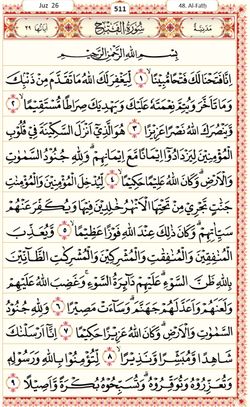 Juz 26
511
48. Al-Fath
مدنية
سورة الفتح
آياتها ٢٩
بِسْمِ اللهِ الرَّحْمٰنِ الرَّحِيْمِ
اِنَّا فَتَحْنَا لَكَ فَتْحًا مُّبِيْنًا ۝١ لِّيَغْفِرَ لَكَ اللهُ مَا تَقَدَّمَ مِنْ ذَنْۢبِكَ
وَمَا تَاَخَّرَ وَيُتِمَّ نِعْمَتَهٗ عَلَيْكَ وَيَهْدِيَكَ صِرَاطًا مُّسْتَقِيْمًا ۝٢
وَّيَنْصُرَكَ اللهُ نَصْرًا عَزِيْزًا ۝٣ هُوَ الَّذِيْٓ اَنْزَلَ السَّكِيْنَةَ فِيْ قُلُوْبِ
الْمُؤْمِنِيْنَ لِيَزْدَادُوْٓا اِيْمَانًا مَّعَ اِيْمَانِهِمْ ۗ وَلِلّٰهِ جُنُوْدُ السَّمٰوٰتِ
وَالْاَرْضِ ۗ وَكَانَ اللهُ عَلِيْمًا حَكِيْمًا ۝٤ لِّيُدْخِلَ الْمُؤْمِنِيْنَ وَالْمُؤْمِنٰتِ
جَنّٰتٍ تَجْرِيْ مِنْ تَحْتِهَا الْاَنْهٰرُ خٰلِدِيْنَ فِيْهَا وَيُكَفِّرَ عَنْهُمْ
سَيِّاٰتِهِمْ ۗ وَكَانَ ذٰلِكَ عِنْدَ اللهِ فَوْزًا عَظِيْمًا ۝٥ وَّيُعَذِّبَ
الْمُنٰفِقِيْنَ وَالْمُنٰفِقٰتِ وَالْمُشْرِكِيْنَ وَالْمُشْرِكٰتِ الظَّآنِّيْنَ
بِاللهِ ظَنَّ السَّوْءِ ۗ عَلَيْهِمْ دَآئِرَةُ السَّوْءِ ۚ وَغَضِبَ اللهُ عَلَيْهِمْ
وَلَعَنَهُمْ وَاَعَدَّ لَهُمْ جَهَنَّمَ ۗ وَسَآءَتْ مَصِيْرًا ۝٦ وَلِلّٰهِ جُنُوْدُ
السَّمٰوٰتِ وَالْاَرْضِ ۗ وَكَانَ اللهُ عَزِيْزًا حَكِيْمًا ۝٧ اِنَّآ اَرْسَلْنٰكَ
شَاهِدًا وَّمُبَشِّرًا وَّنَذِيْرًا ۝٨ لِّتُؤْمِنُوْا بِاللهِ وَرَسُوْلِهٖ
وَتُعَزِّرُوْهُ وَتُوَقِّرُوْهُ ۗ وَتُسَبِّحُوْهُ بُكْرَةً وَّاَصِيْلًا ۝٩